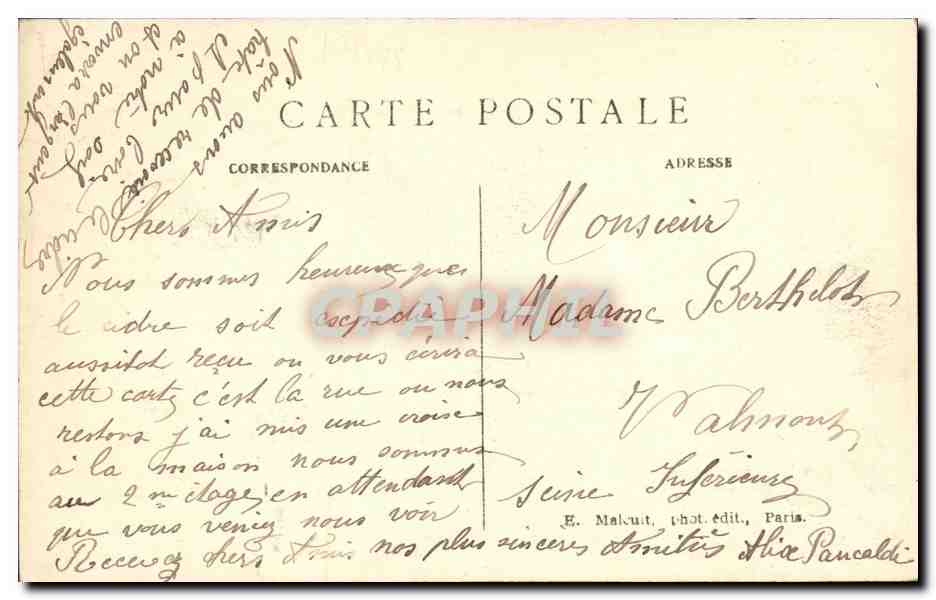 CARTE POSTALE
CORRESPONDANCE
ADRESSE
Chers Amis
Nous sommes heureux que
le cidre soit expédié
aussitot reçu on vous écrira
cette carte c'est la rue ou nous
restons j'ai mis une croise
à la maison nous sommes
au 2me étage, en attendant
que vous veniez nous voir
Recevez chers Amis nos plus sincères Amitiés Alice Pancaldi
Nous avons
hate de recevoir
et pour
à notre
et on vous
enverra l'argent
également
le cidre
Monsieur
Madame Berthelot
Valmont
Seine Inférieure
E. Malcuit, phot. édit., Paris.
CRAPHEL